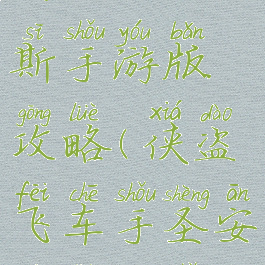 sī shǒu yóu bǎn
斯手游版
gōng lüè xiá dào
攻略(侠盗
fēi chē shǒu shèng ān
飞车手圣安